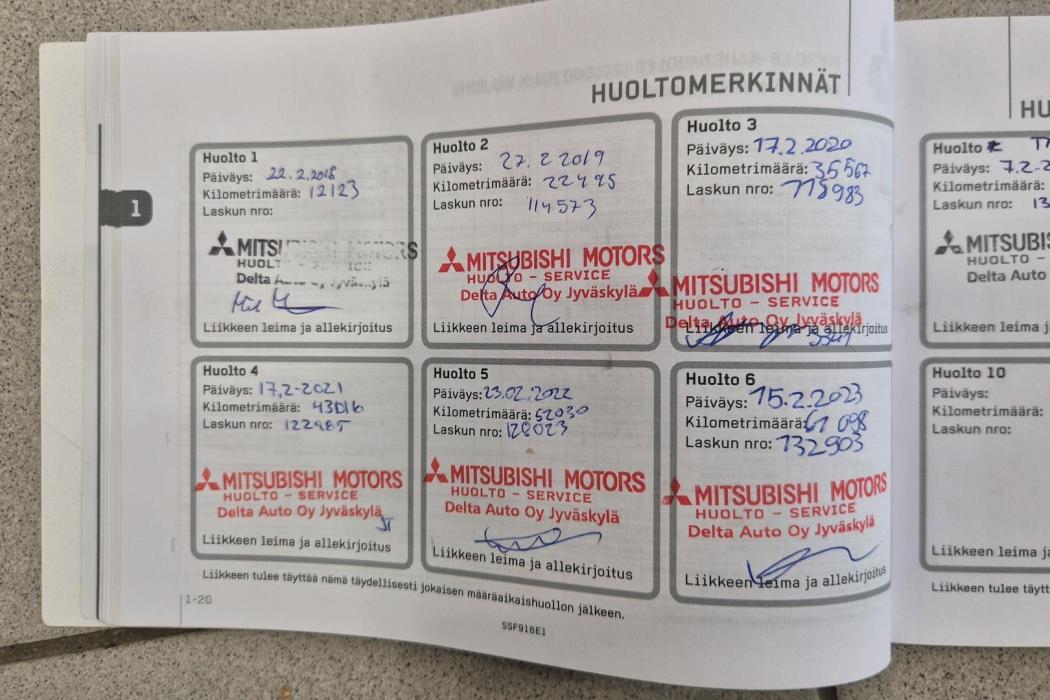 HUOLTOMERKINNÄT
Huolto 1
Päiväys: 22.2.2018
Kilometrimäärä: 12123
Laskun nro:
MITSUBISHI MOTORS
HUOLTO - SERVICE
Delta Auto Oy Jyväskylä
Liikkeen leima ja allekirjoitus
Huolto 2
Päiväys: 27.2 2019
Kilometrimäärä: 22495
Laskun nro: 114573
MITSUBISHI MOTORS
HUOLTO - SERVICE
Delta Auto Oy Jyväskylä
Liikkeen leima ja allekirjoitus
Huolto 3
Päiväys: 17.2.2020
Kilometrimäärä: 35567
Laskun nro: 118983
MITSUBISHI MOTORS
HUOLTO - SERVICE
Delta Auto Oy Jyväskylä
Liikkeen leima ja allekirjoitus
Huolto 4
Päiväys: 17.2-2021
Kilometrimäärä: 43016
Laskun nro: 122985
MITSUBISHI MOTORS
HUOLTO - SERVICE
Delta Auto Oy Jyväskylä
Liikkeen leima ja allekirjoitus
Huolto 5
Päiväys: 23.02.2022
Kilometrimäärä: 52030
Laskun nro: 128023
MITSUBISHI MOTORS
HUOLTO - SERVICE
Delta Auto Oy Jyväskylä
Liikkeen leima ja allekirjoitus
Huolto 6
Päiväys: 15.2.2023
Kilometrimäärä: 61 098
Laskun nro: 132903
MITSUBISHI MOTORS
HUOLTO - SERVICE
Delta Auto Oy Jyväskylä
Liikkeen leima ja allekirjoitus
Liikkeen tulee täyttää nämä täydellisesti jokaisen määräaikaishuollon jälkeen.
1
1-20
SSF916E1
HU
Huolto
Päiväys: 7.2-2
Kilometrimäärä:
Laskun nro: 13
MITSUBIS
HUOLTO -
Delta Auto
Liikkeen leima j
Huolto 10
Päiväys:
Kilometrimäärä:
Laskun nro:
Liikkeen leima ja
Liikkeen tulee täytt